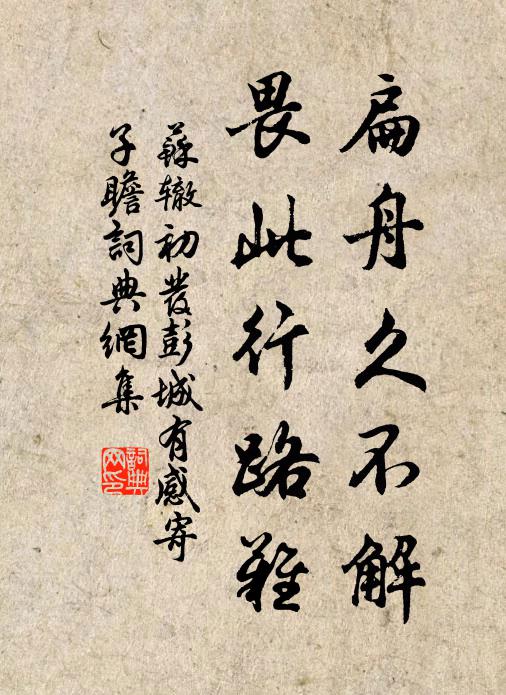 扁舟久不解
畏此行路難
蘇辙初發彭城有感寄
子瞻詞典網集
詞典
网印